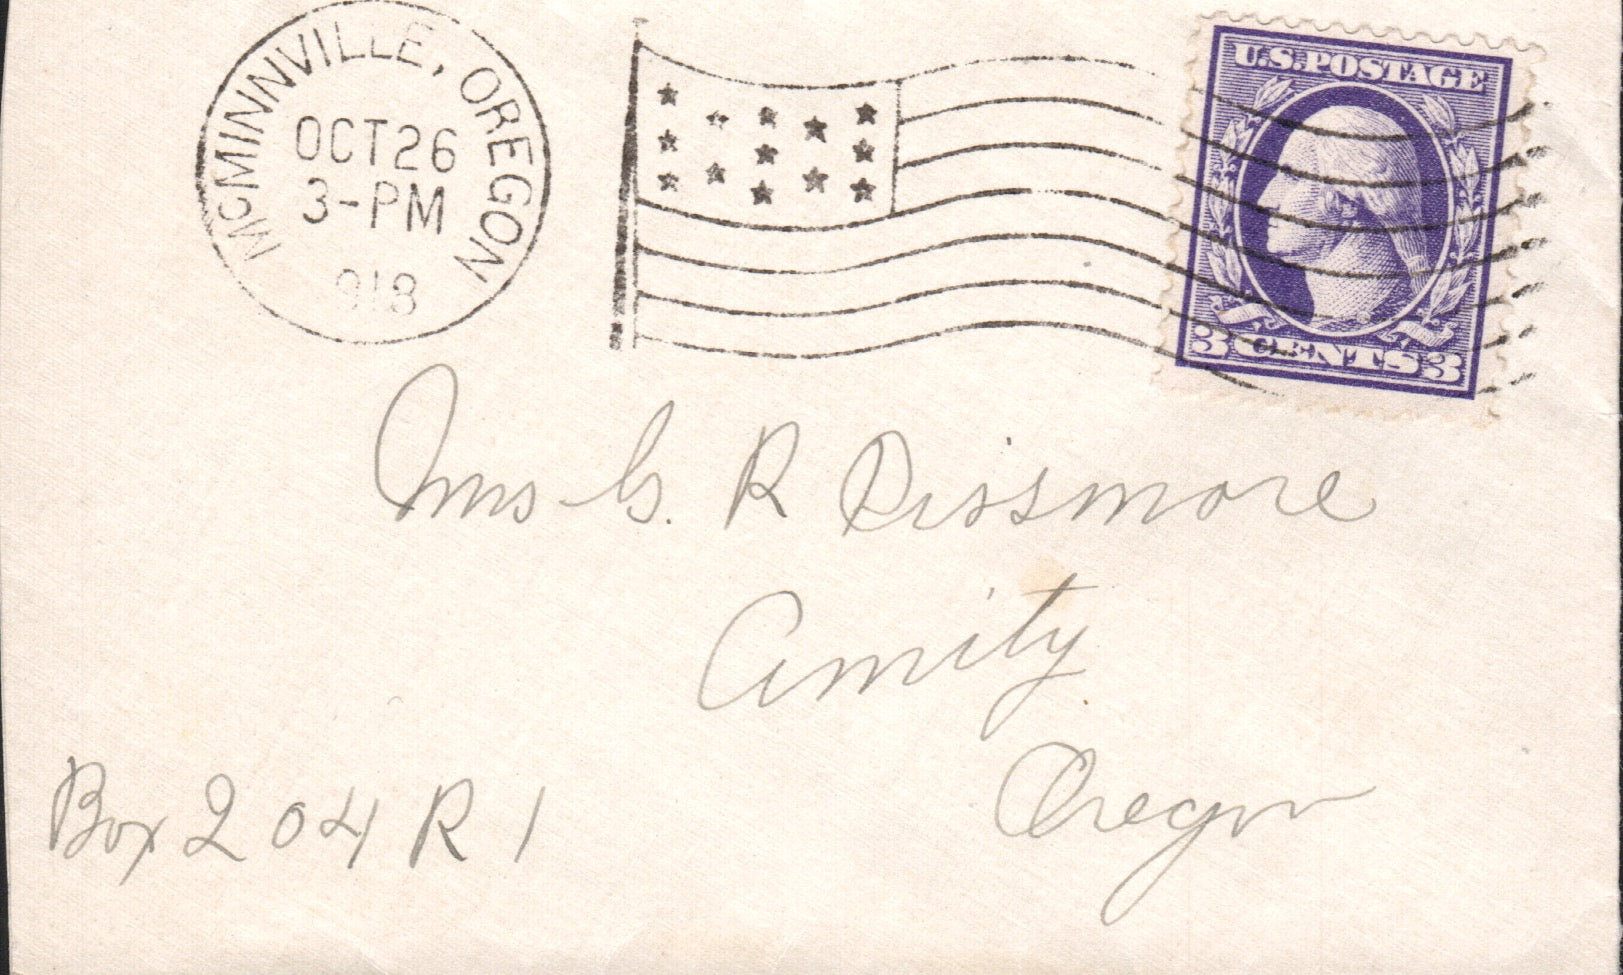 MCMINNVILLE, OREGON
OCT 26
3-PM
918
U.S. POSTAGE
3 CENTS 3
Mrs G. R Dissmore
Amity
Oregon
Box 204 R 1